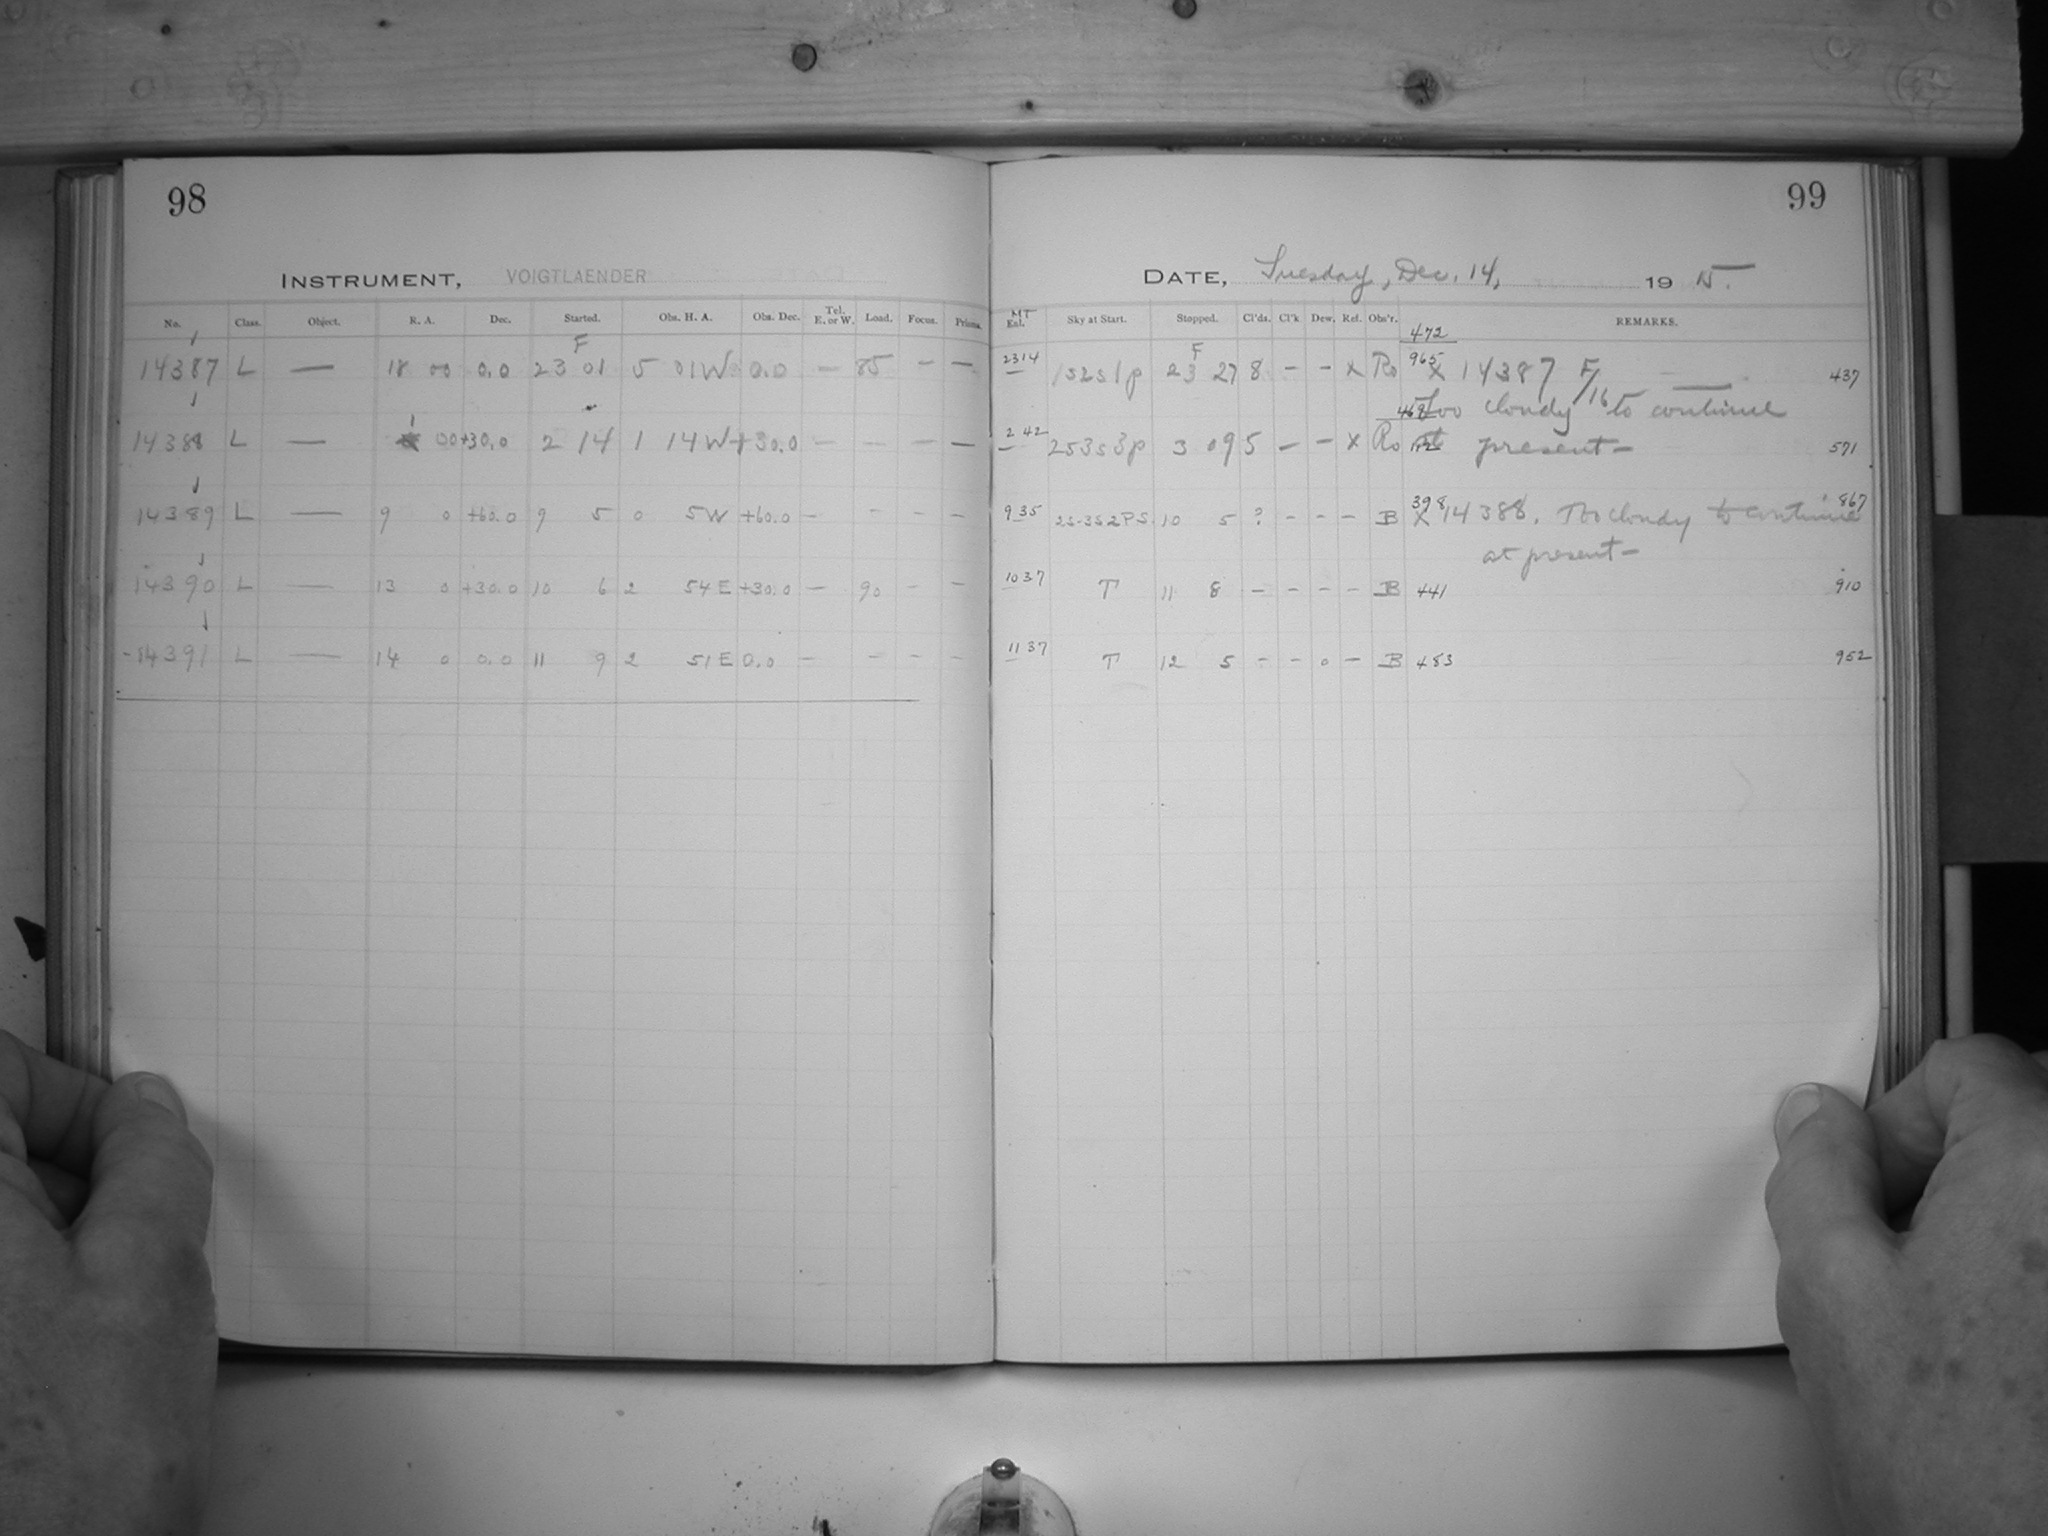 98
INSTRUMENT, VOIGTLAENDER
No. Class. Object. R. A. Dec. Started. Obs. H. A. Obs. Dec. Tel. E. or W. Load. Focus. Prisms.
14387 L — 18 00 0.0 23 F 01 5 01W 0.0 — 85 — —
14388 L — 1 00 +30.0 2 14 1 14W +30.0 — — — —
14389 L — 9 0 +60.0 9 5 0 5W +60.0 — - - —
14390 L — 13 0 +30.0 10 6 2 54E +30.0 — 90 - —
14391 L — 14 0 0.0 11 9 2 51E 0.0 — - - —
99
DATE, Tuesday, Dec. 14, 19 15.
MT Exl. Sky at Start. Stopped. Cl'ds. Cl'k Dew. Ref. Obs'r. REMARKS.
472
2314 1s2s1p 23 F 27 8 - - x Ro 965 x 14387 F/16 437
468 Too cloudy to continue
2 42 2s3s3p 3 09 5 — — x Ro at present— 571
9 35 2s-3s2ps 10 5 ? - - — B 398 x 14388. Too cloudy to continue 867
at present—
10 37 T 11 8 — - - — B 441 910
11 37 T 12 5 - - 0 — B 483 952